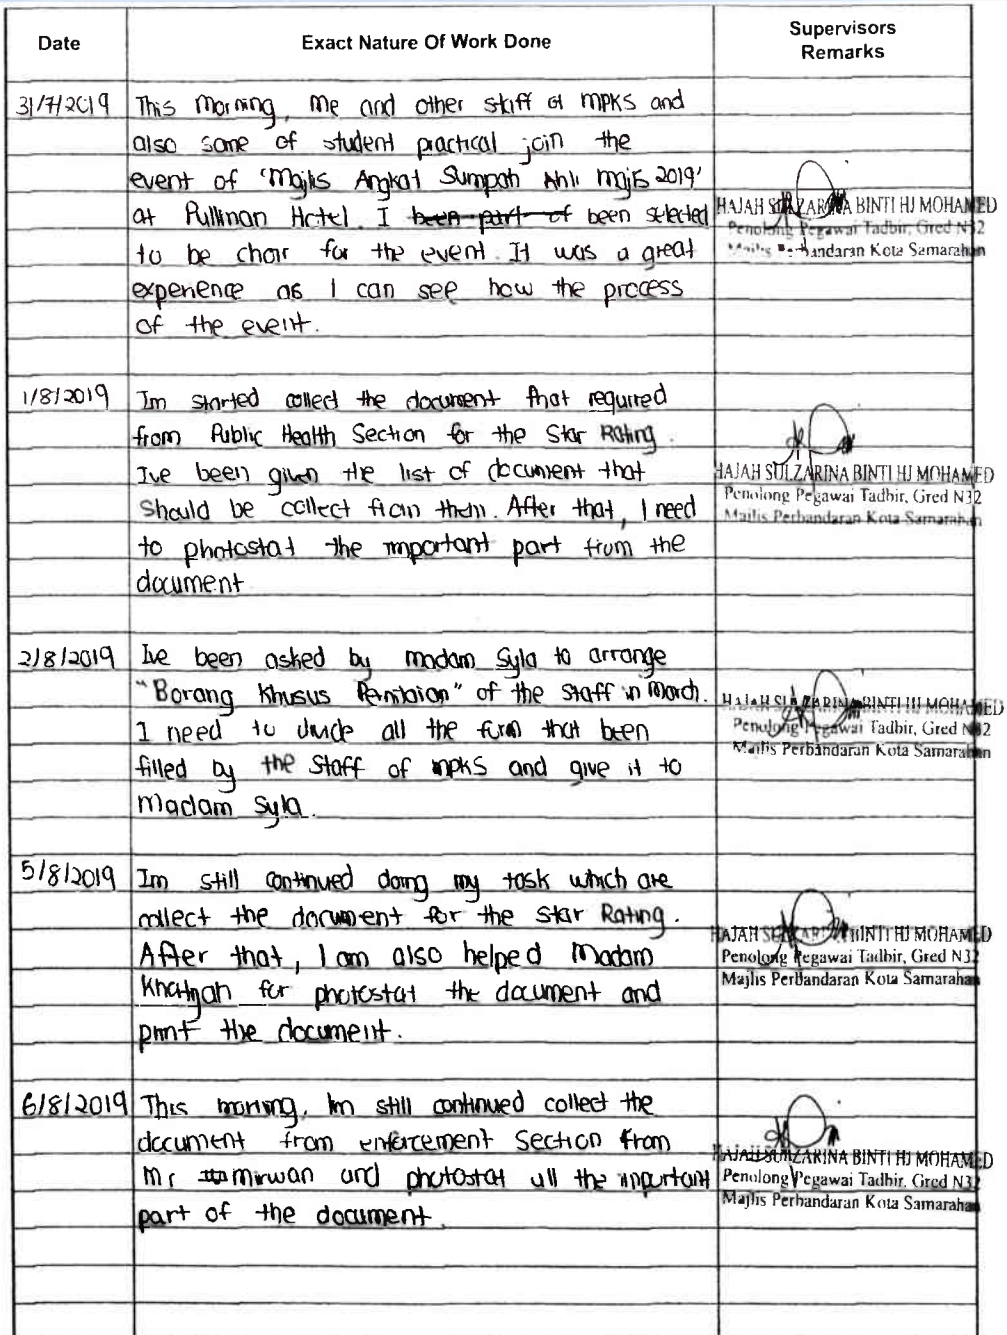 Date
Exact Nature Of Work Done
Supervisors
Remarks
31/7/2019
This morning, me and other staff of MPKS and
also some of student practical join the
event of 'Majlis Angkat Sumpah Ahli Majlis 2019'
at Pullman Hotel. I been part of been selected
to be choir for the event. It was a great
experience as I can see how the process
of the event.
HAJAH SULZARINA BINTI HJ MOHAMED
Penolong Pegawai Tadbir, Gred N32
Majlis Perbandaran Kota Samarahan
1/8/2019
Im started collect the document that required
from Public Health Section for the Star Rating.
Ive been given the list of document that
should be collect from them. After that, I need
to photostat the important part from the
document
HAJAH SULZARINA BINTI HJ MOHAMED
Penolong Pegawai Tadbir, Gred N32
Majlis Perbandaran Kota Samarahan
2/8/2019
Ive been asked by madam Syla to arrange
"Borang Khusus Penilaian" of the staff in March.
I need to divide all the form that been
filled by the staff of MPKS and give it to
Madam Syla.
HAJAH SULZARINA BINTI HJ MOHAMED
Penolong Pegawai Tadbir, Gred N32
Majlis Perbandaran Kota Samarahan
5/8/2019
Im still continued doing my task which are
collect the document for the Star Rating.
After that, I am also helped Madam
for photostat the document and
print the document.
HAJAH SULZARINA BINTI HJ MOHAMED
Penolong Pegawai Tadbir, Gred N32
Majlis Perbandaran Kota Samarahan
6/8/2019
This morning, Im still continued collect the
document from enforcement Section from
Mr mirwan and photostat all the important
part of the document.
HAJAH SULZARINA BINTI HJ MOHAMED
Penolong Pegawai Tadbir, Gred N32
Majlis Perbandaran Kota Samarahan